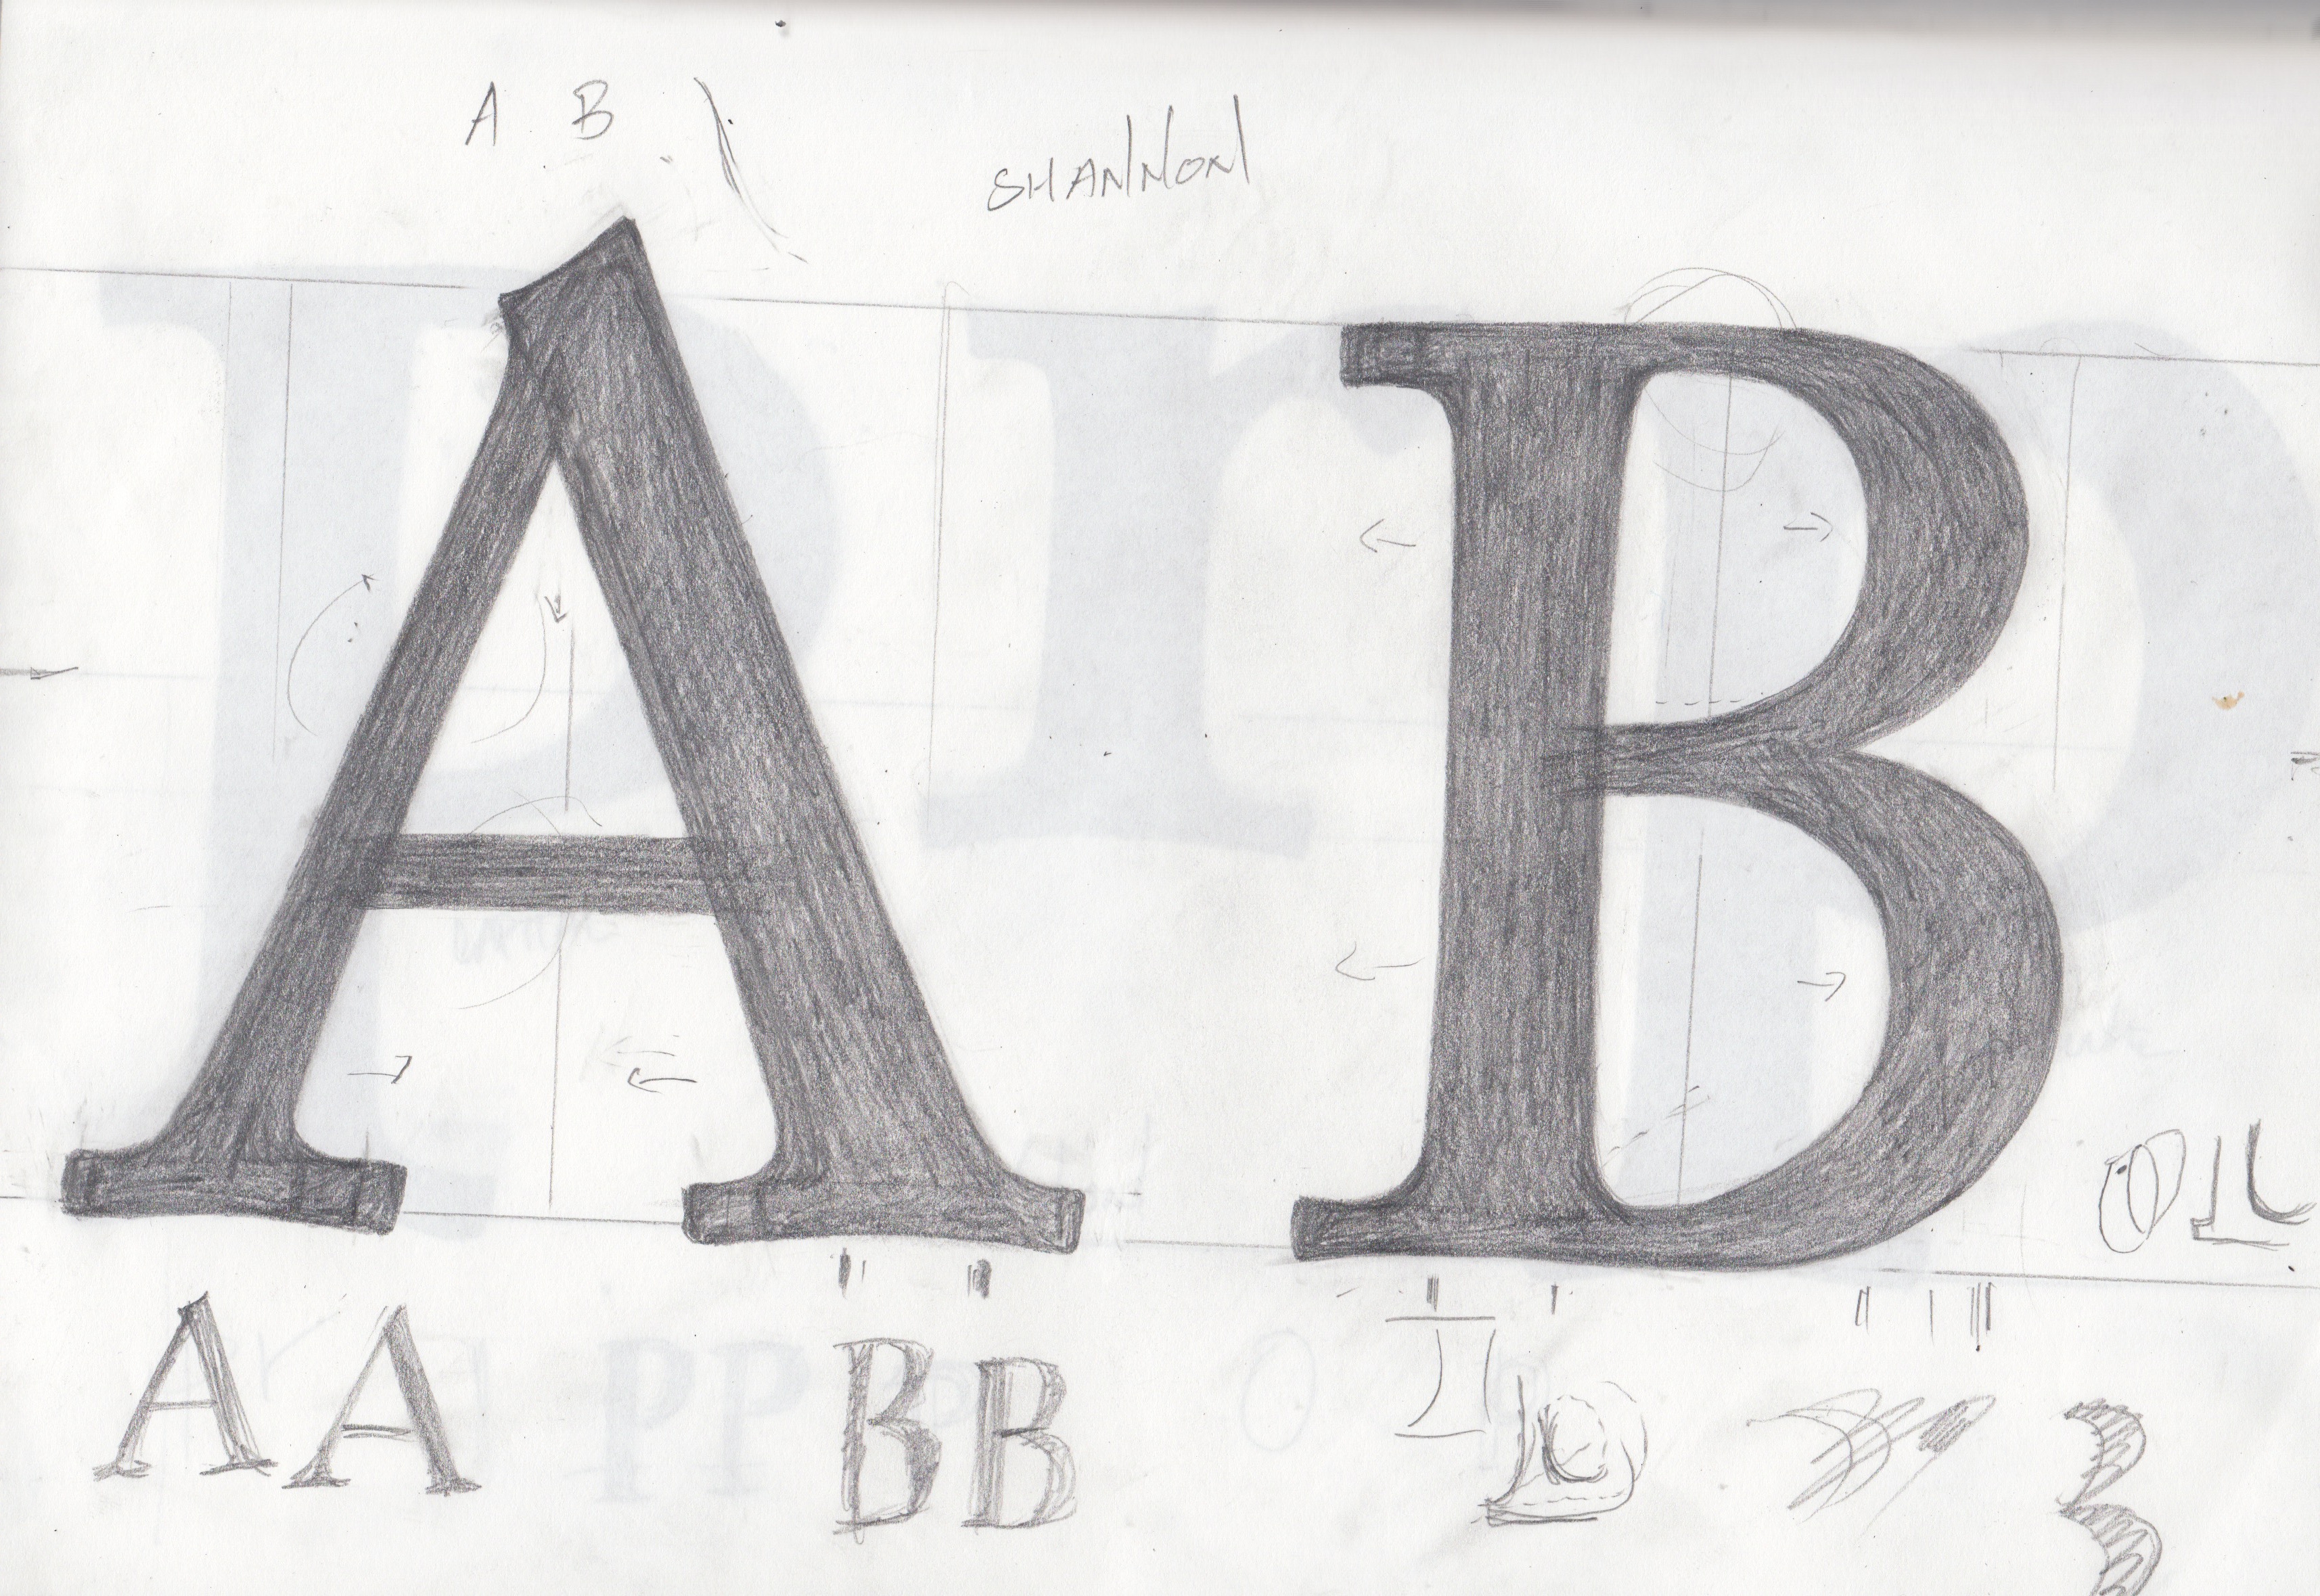 A B
SHANNON
A B
A A B B